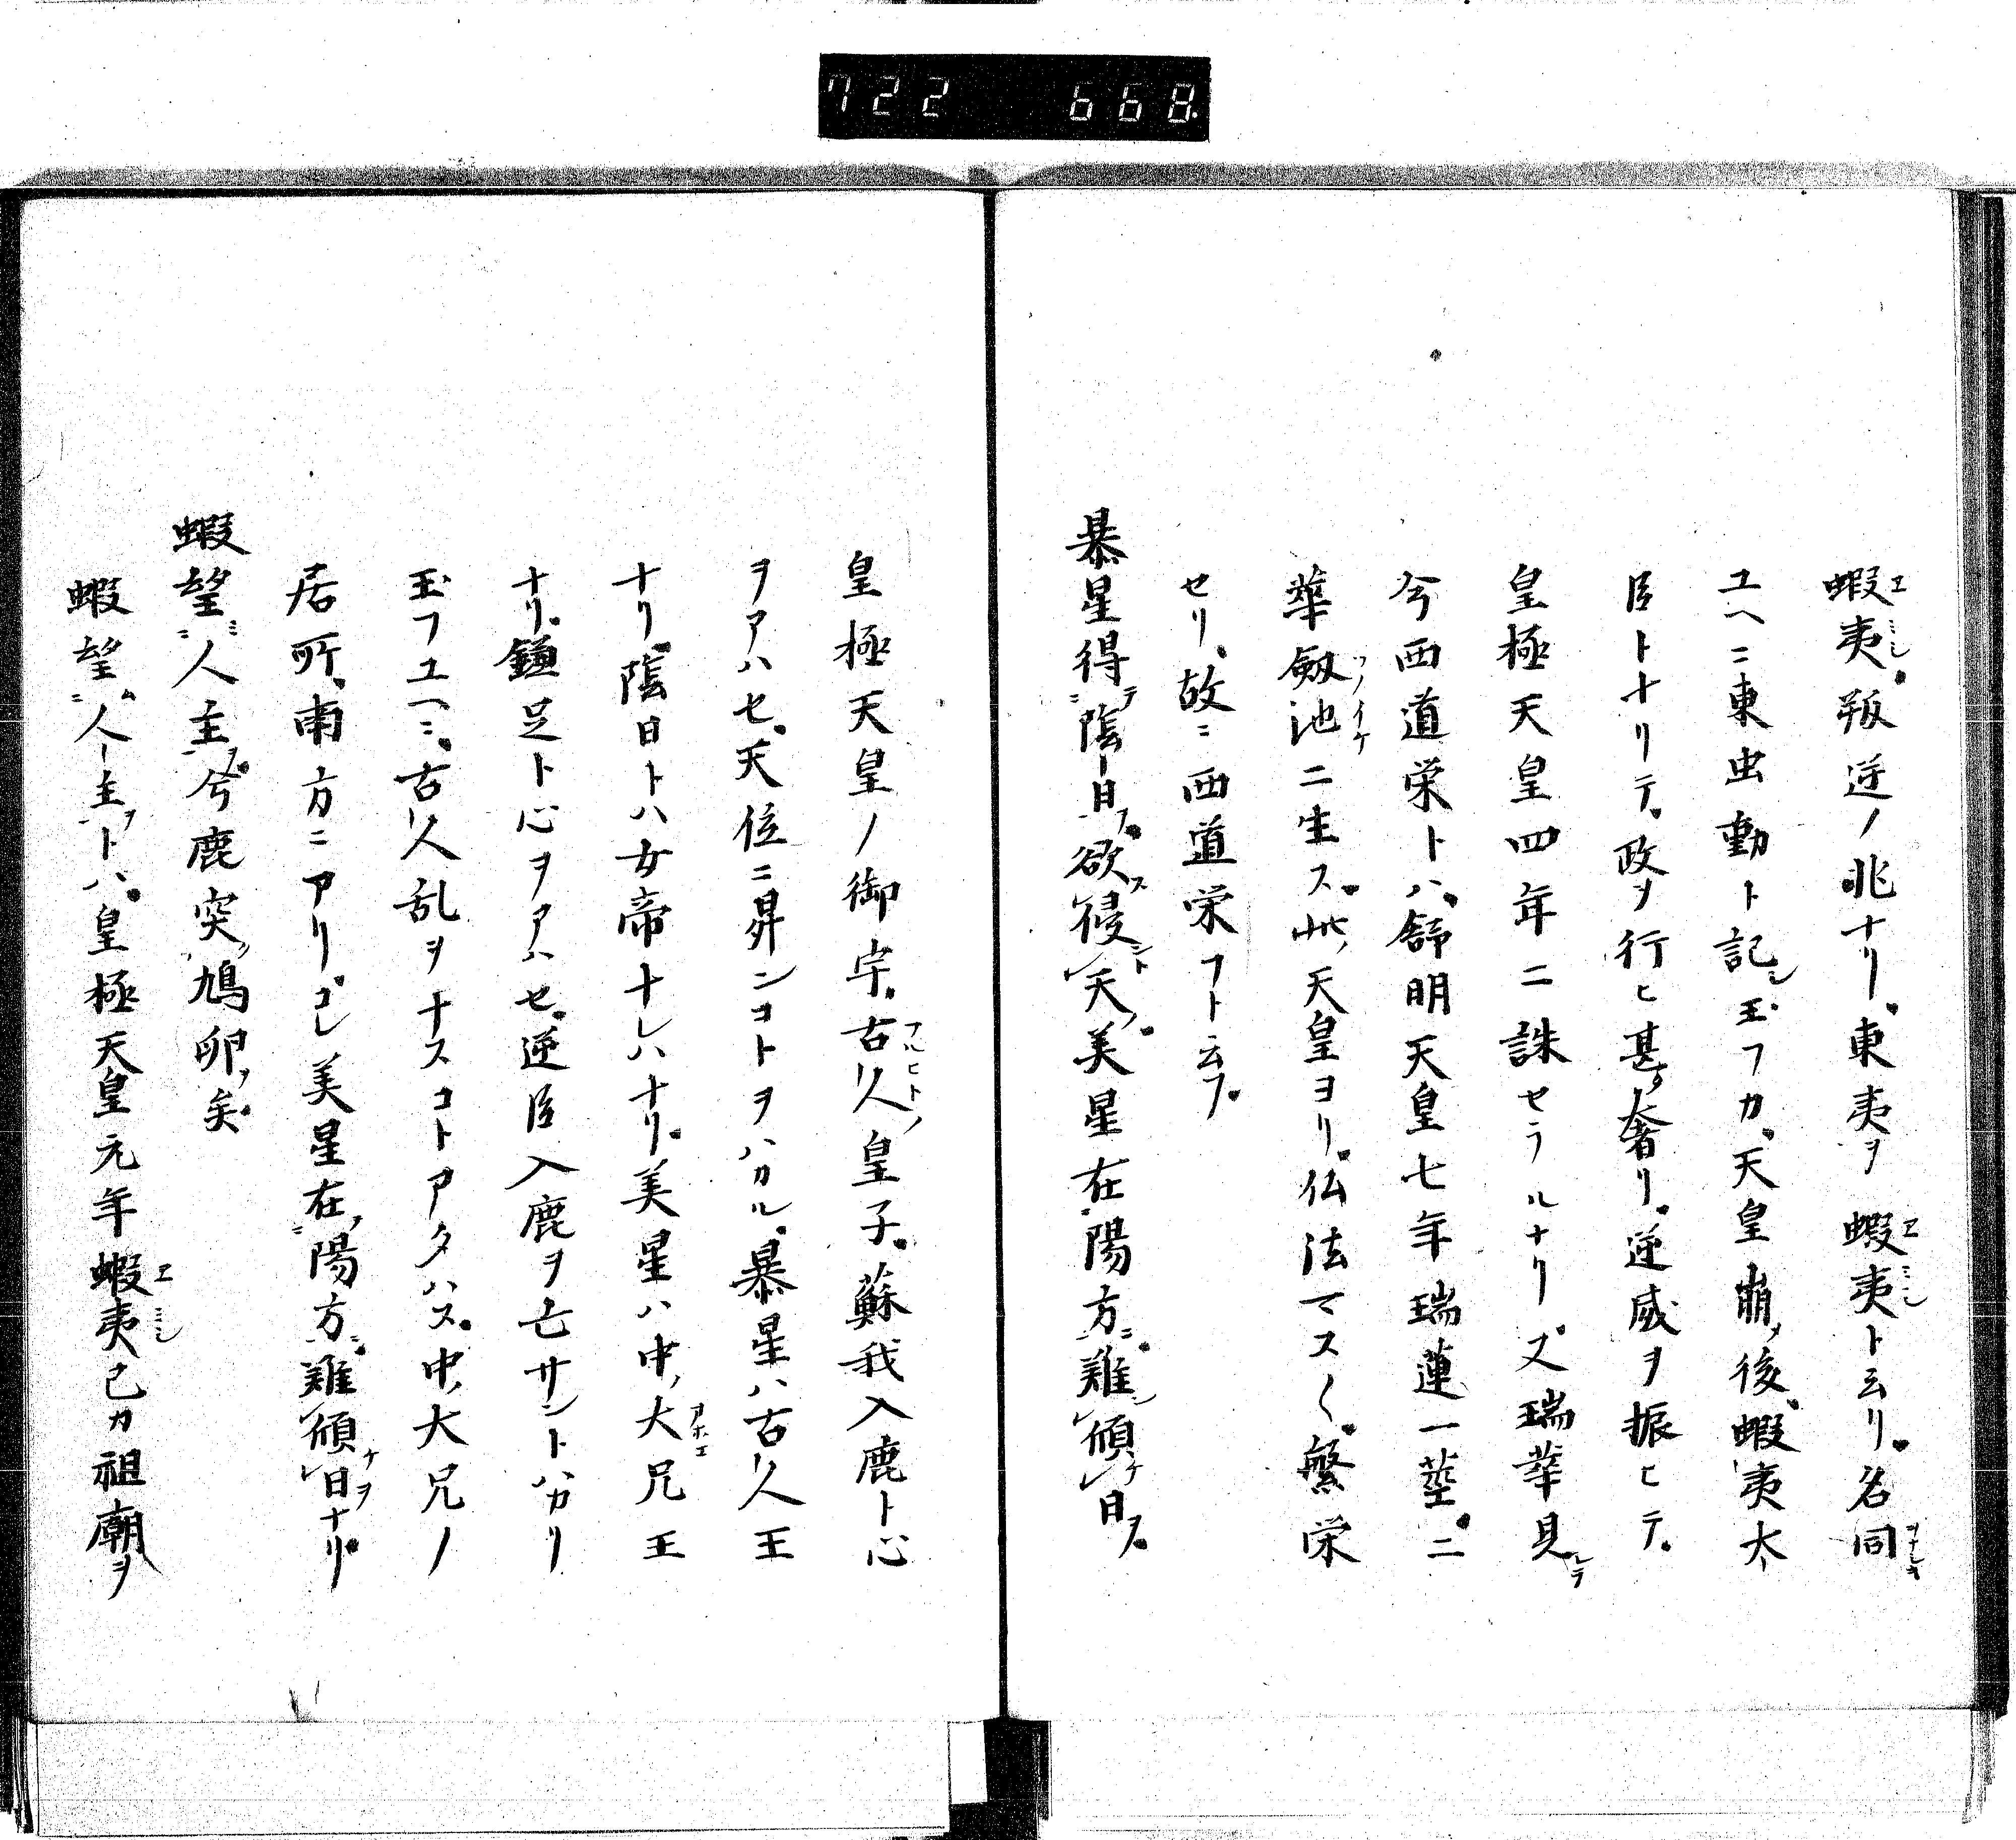 722 668.
蝦夷叛逆ノ兆ナリ東夷ヲ蝦夷ト云リ名同
ユヘニ東虫動ト記シ玉フカ天皇崩ノ後蝦夷大
臣トナリテ政ヲ行ヒ甚タ奢リ逆威ヲ振ヒテ
皇極天皇四年ニ誅セラルナリ又瑞華見レテ
今西道栄トハ舒明天皇七年瑞蓮一莖ニ二
華剱池ニ生ス此ノ天皇ヨリ仏法マスく繁栄
セリ故ニ西道栄フト云フ
暴星得テ陰日ヲ欲ス侵シト天ヲ美星在陽方ニ難シ傾ケ日ヲ
皇極天皇ノ御宇古人皇子蘇我入鹿ト心
ヲアハセ天位ニ昇ンコトヲハカル暴星ハ古人王
ナリ陰日トハ女帝ナレハナリ美星ハ中ノ大兄王
ナリ鎌足ト心ヲアハセ逆臣入鹿ヲ亡サントハカリ
玉フユヘニ古人乱ヲナスコトアタハス中ノ大兄ノ
居所南方ニアリコレ美星在ノ陽方ニ難傾日ナリ
蝦望ミ人主ヲ兮鹿突ク鳩卵ヲ矣
蝦望ム人主ヲトハ皇極天皇元年蝦夷己カ祖廟ヲ